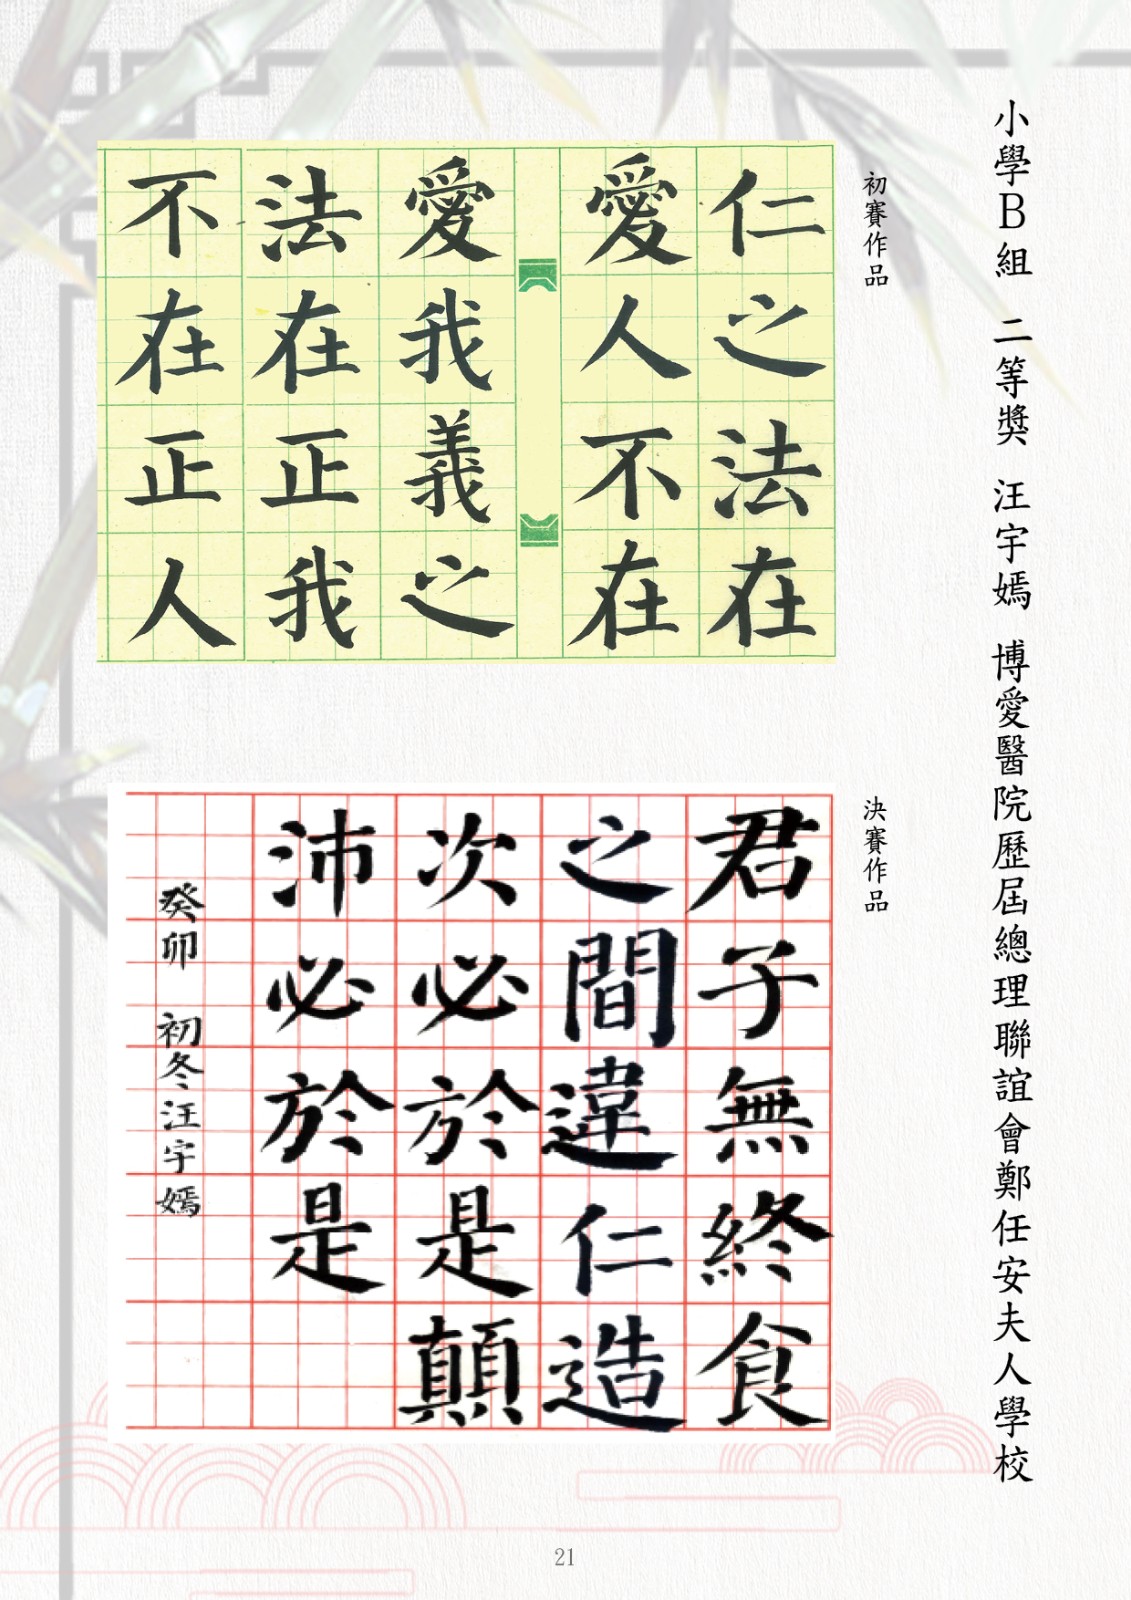 小學B組 二等獎 汪宇嫣 博愛醫院歷屆總理聯誼會鄭任安夫人學校
初賽作品
仁之法在
愛人不在
愛我義之
法在正我
不在正人
決賽作品
君子無終食
之間違仁造
次必於是顛
沛必於是
癸卯 初冬汪宇嫣
21